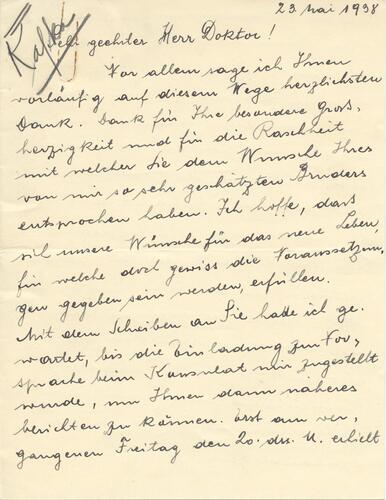 23. Mai 1938
Kafka
Sehr geehrter Herr Doktor!
Vor allem sage ich Ihnen
vorläufig auf diesem Wege herzlichsten
Dank. Dank für Ihre besondere Gross,
herzigkeit und für die Raschheit
mit welcher Sie dem Wunsche Ihres
von mir so sehr geschätzten Bruders
entsprochen haben. Ich hoffe, dass
sich unsere Wünsche für das neue Leben,
für welche doch gewiss die Voraussetzun,
gen gegeben sein werden, erfüllen.
Mit dem Schreiben an Sie hatte ich ge,
wartet, bis die Einladung zur Vor,
sprache beim Konsulat mir zugestellt
wurde, um Ihnen dann näheres
berichten zu können. Erst am ver,
gangenen Freitag den 20. ds. M. erhielt